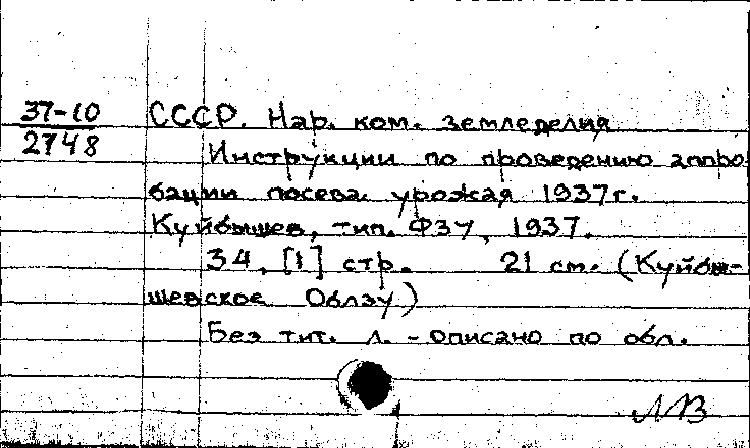 37-10
2748
СССР. Нар. ком. земледелия
Инструкции по проведению аппро-
бации посева урожая 1937г.
Куйбышев, тип. ФЗУ, 1937.
34, [1] стр. 21 см. (Куйбы-
шевское Облзу)
Без тит. л. - описано по обл.